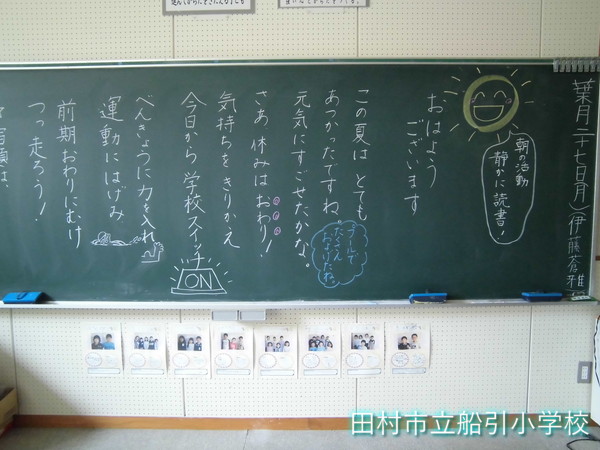 葉月二十七日(月)(伊藤蒼雅
朝の活動
静かに読書!
おはよう
ございます
この夏は とても
あつかったですね。
元気にすごせたかな。
プールで
たくさん
およげたね。
さあ 休みはおわり!
気持ちをきりかえ
今日から 学校スイッチ
ON
べんきょうに力を入れ
運動にはげみ
前期おわりにむけ
つっ走ろう!
田村市立船引小学校